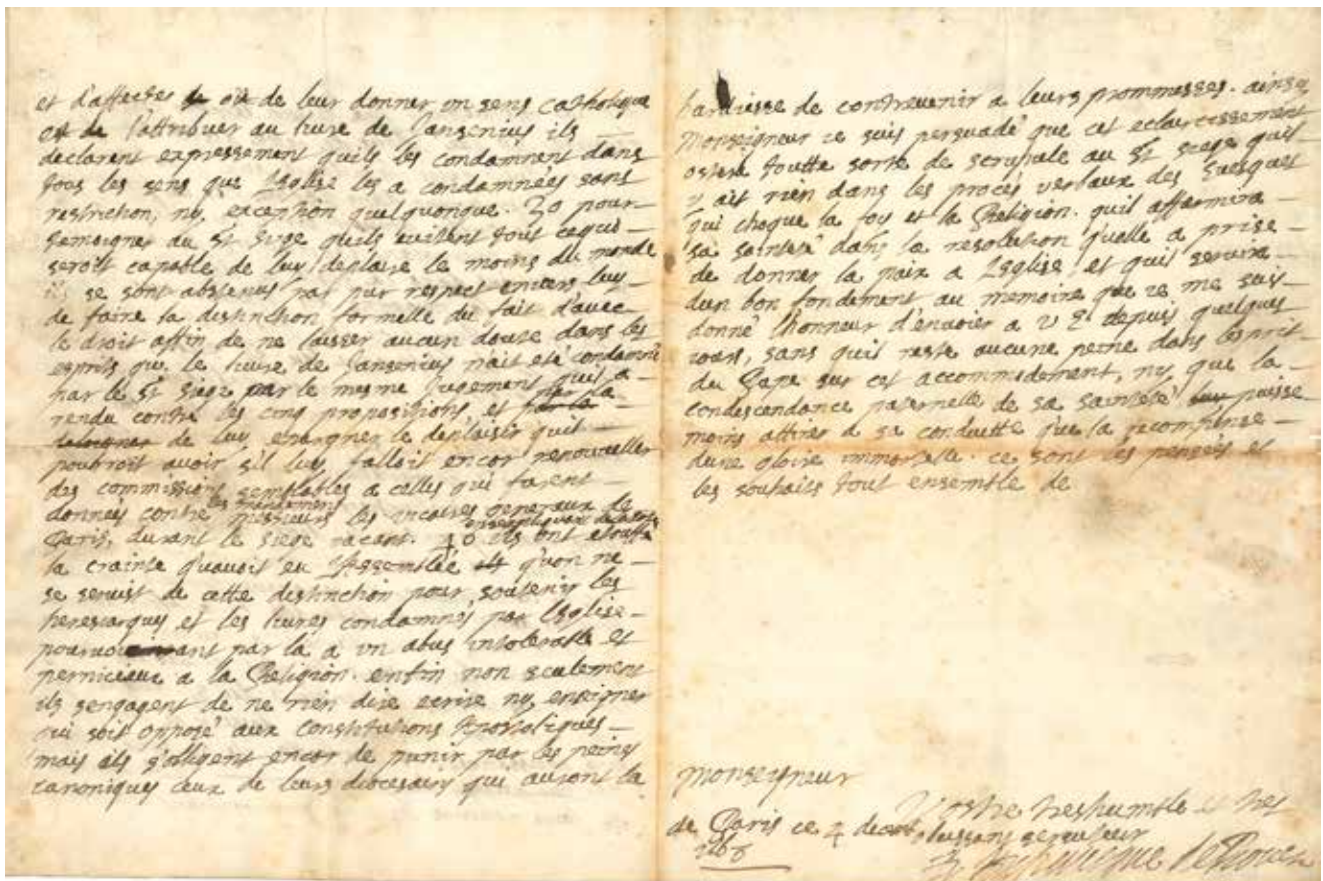 et d'affecter ou de leur donner un sens catholique
de l'attribuer au livre de Jansenius ils
declarent expressement quils les condamnent dans
tous les sens que l'Eglise les a condamnées sans
restriction, ny exception quelquonque. 3o pour
temoigner au St Siege quils evitent tout cequi
seroit capable de luy deplaire le moins du monde
ils se sont abstenus par pur respect envers luy
de faire la distinction formelle du fait d'avec
le droit affin de ne laisser aucun doute dans les
esprits que le livre de Jansenius n'ait eté condamné
par le St Siege par le mesme jugement quil a
rendu contre les cinq propositions, et par la
de luy epargner le deplaisir quil
pourroit avoir s'il luy falloit encor renouveller
des commissions semblables a celles qui furent
données contre les mandemens messieurs les vicaires generaux de
Paris, durant le siege vacant. 4o ils ont etouffé
la crainte qu'avoit eu l'Assemblée qu'on ne
se servist de cette distinction pour soutenir les
heresiarques et les livres condamnés par l'Eglise
par la a un abus intolerable et
pernicieux a la Religion. enfin non seulement
ils sengagent de ne rien dire ecrire ny enseigner
qui soit opposé aux constitutions Apostoliques
mais ils s'obligent encor de punir par les peines
canoniques ceux de leurs diocesains qui auront la
hardiesse de contrevenir a leurs prommesses. ainsy
Monseigneur ie suis persuadé que cet eclaircissement
ostera toutte sorte de scrupule au St Siege quil
y ait rien dans les procés verbaux des Evesques
qui choque la foy et la Religion. quil affermira
sa sainteté dans la resolution qu'elle a prise
de donner la paix a l'Eglise et quil servira
dun bon fondement au memoire que ie me suis
donné l'honneur d'envoier a V E depuis quelques
iours, sans quil reste aucune peine dans l'esprit
du Pape sur cet accommodement, ny que la
condescendance paternelle de sa sainteté puisse
moins attirer a sa conduitte que la recompense
dune gloire immortelle. ce sont les pensées et
les souhaits tout ensemble de
Monseigneur
Vostre tres humble et tres
de Paris ce 4 decemb. obeissant serviteur
1668
archevesque de Rouen